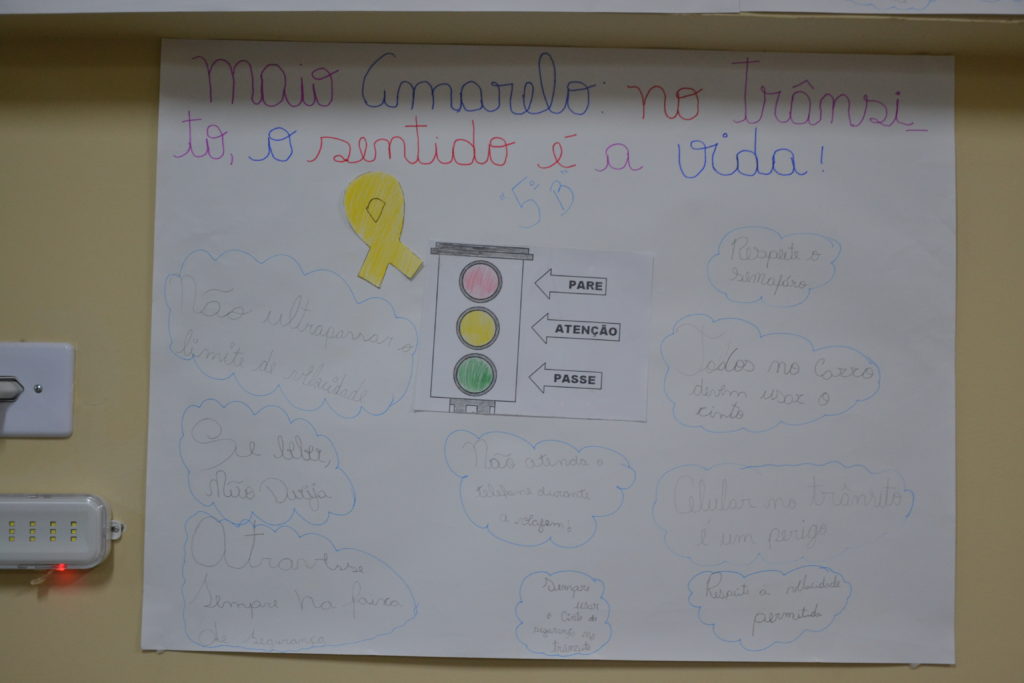 Maio Amarelo: no trânsi_
to, o sentido é a vida!
"5º B"
Respeite o
semáforo
PARE
ATENÇÃO
PASSE
Não ultrapassar o
limite de velocidade
Todos no carro
devem usar o
cinto
Se beber,
não Dirija
Não atenda o
telefone durante
a viagem!
Celular no trânsito
é um perigo
Atravesse
Sempre na faixa
de segurança
Sempre
usar
o Cinto de
segurança no
trânsito
Respeite a velocidade
permitida